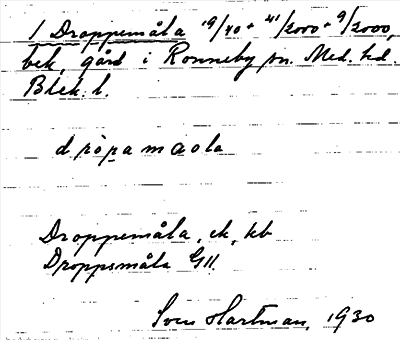 1 Droppemåla 19/40 + 41/2000 + 9/2000,
bek. gård i Ronneby sn. Med. hd.
Blek. l.
dròpamaola
Droppemåla, ek, kb
Droppsmåla GII.
Sven Hartman, 1930